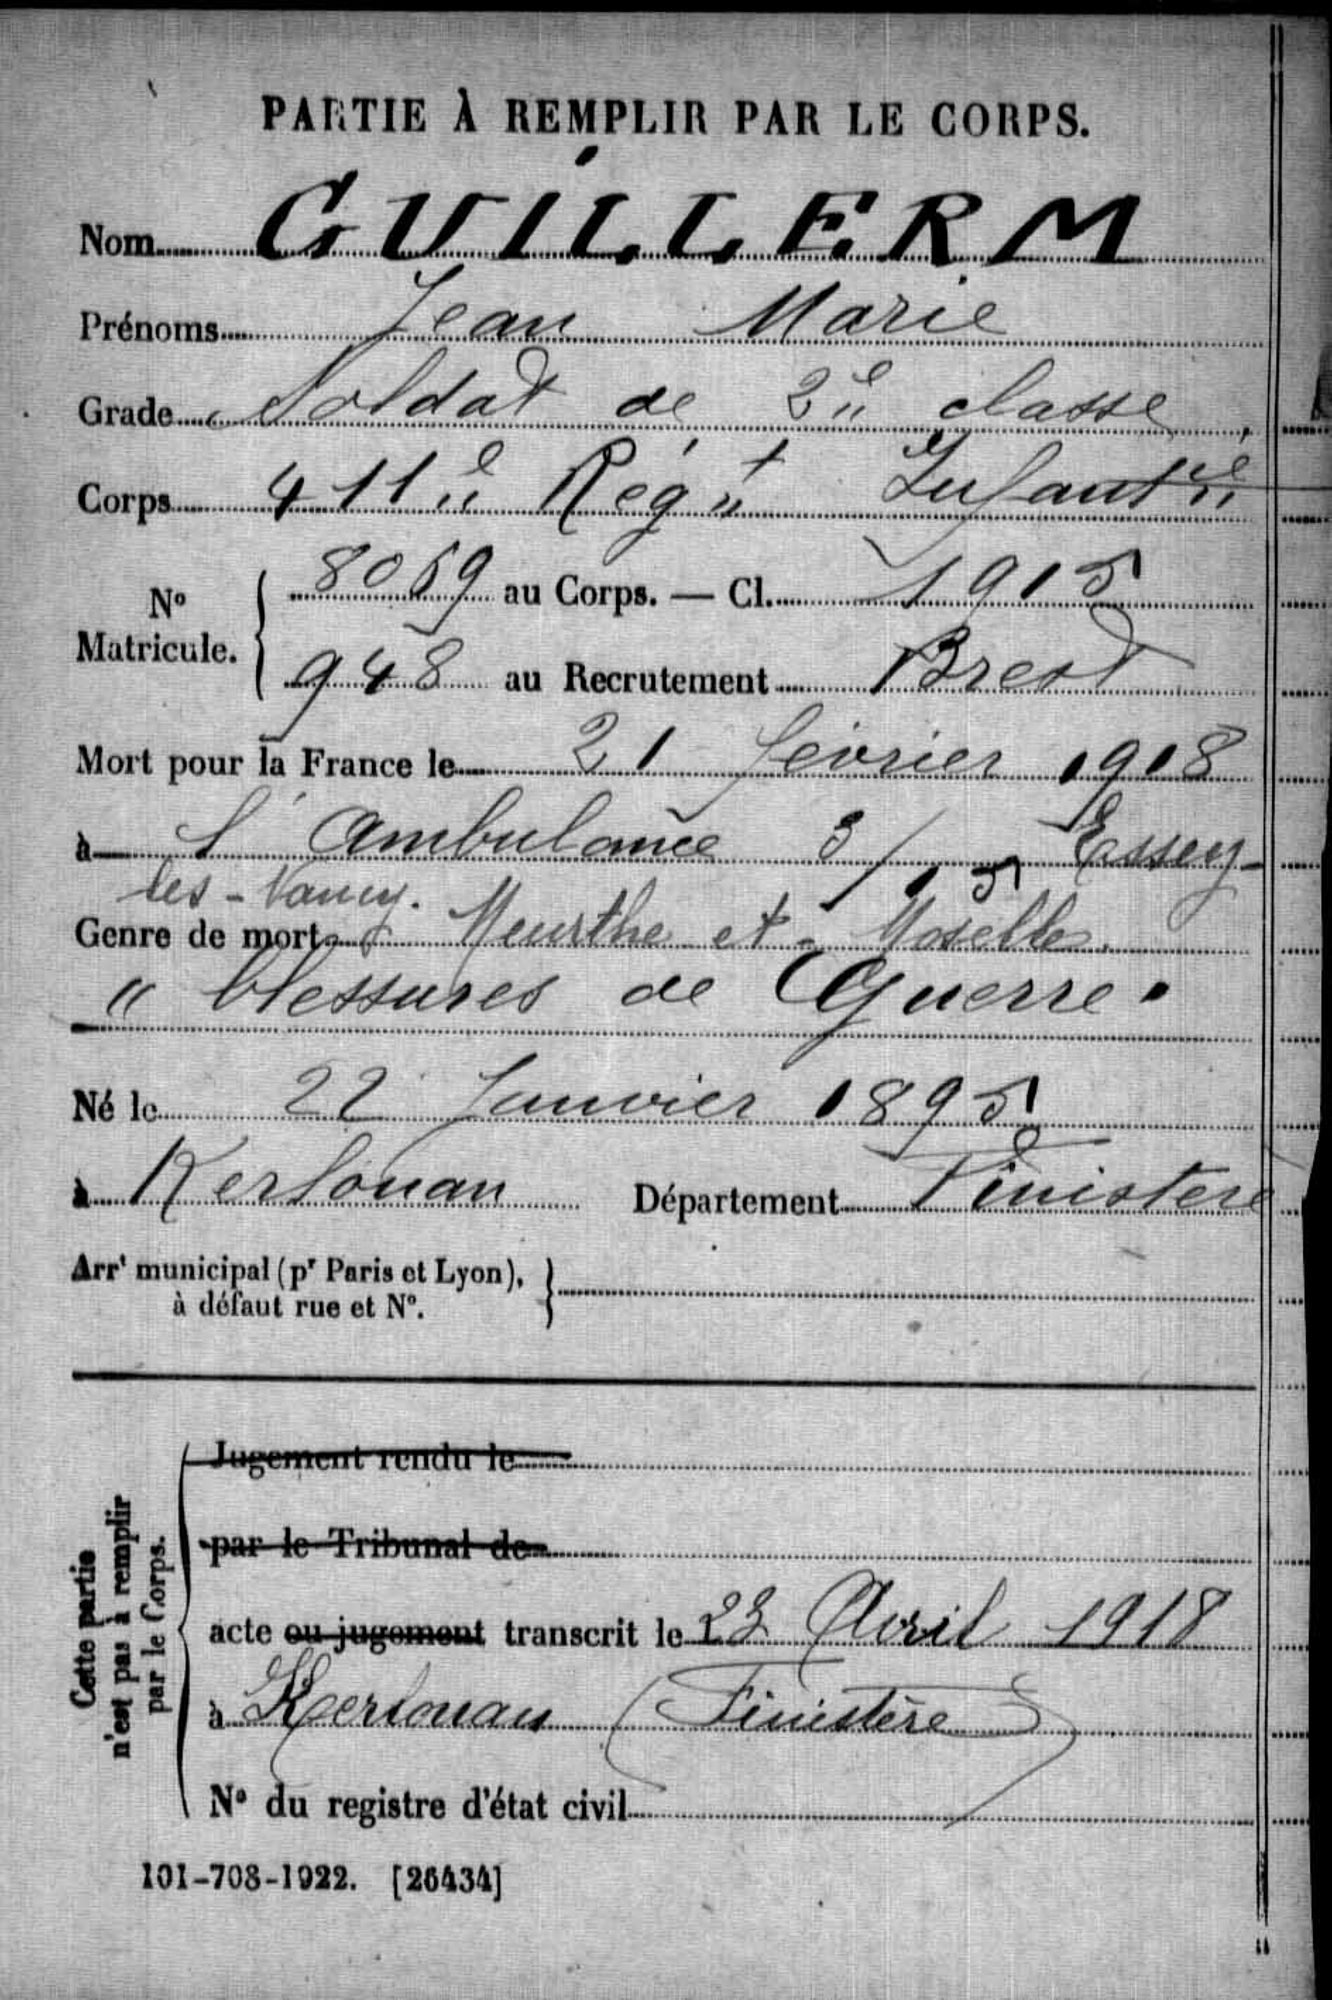 PARTIE À REMPLIR PAR LE CORPS.
Nom GUILLERM
Prénoms Jean Marie
Grade Soldat de 2e classe
Corps 411e Régt Infantie
No Matricule. { 8069 au Corps. — Cl. 1915
948 au Recrutement Brest
Mort pour la France le 21 février 1918
à l'Ambulance 3/15 Essey-
les-Nancy.
Genre de mort Meurthe et Moselle.
"blessures de Guerre"
Né le 22 Janvier 1895
à Kerlouan Département Finistère
Arrt municipal (pr Paris et Lyon),
à défaut rue et No.
Cette partie
n'est pas à remplir
par le Corps.
Jugement rendu le
par le Tribunal de
acte ou jugement transcrit le 23 Avril 1918
à Kerlouan (Finistère)
No du registre d'état civil
101-708-1922. [26434]